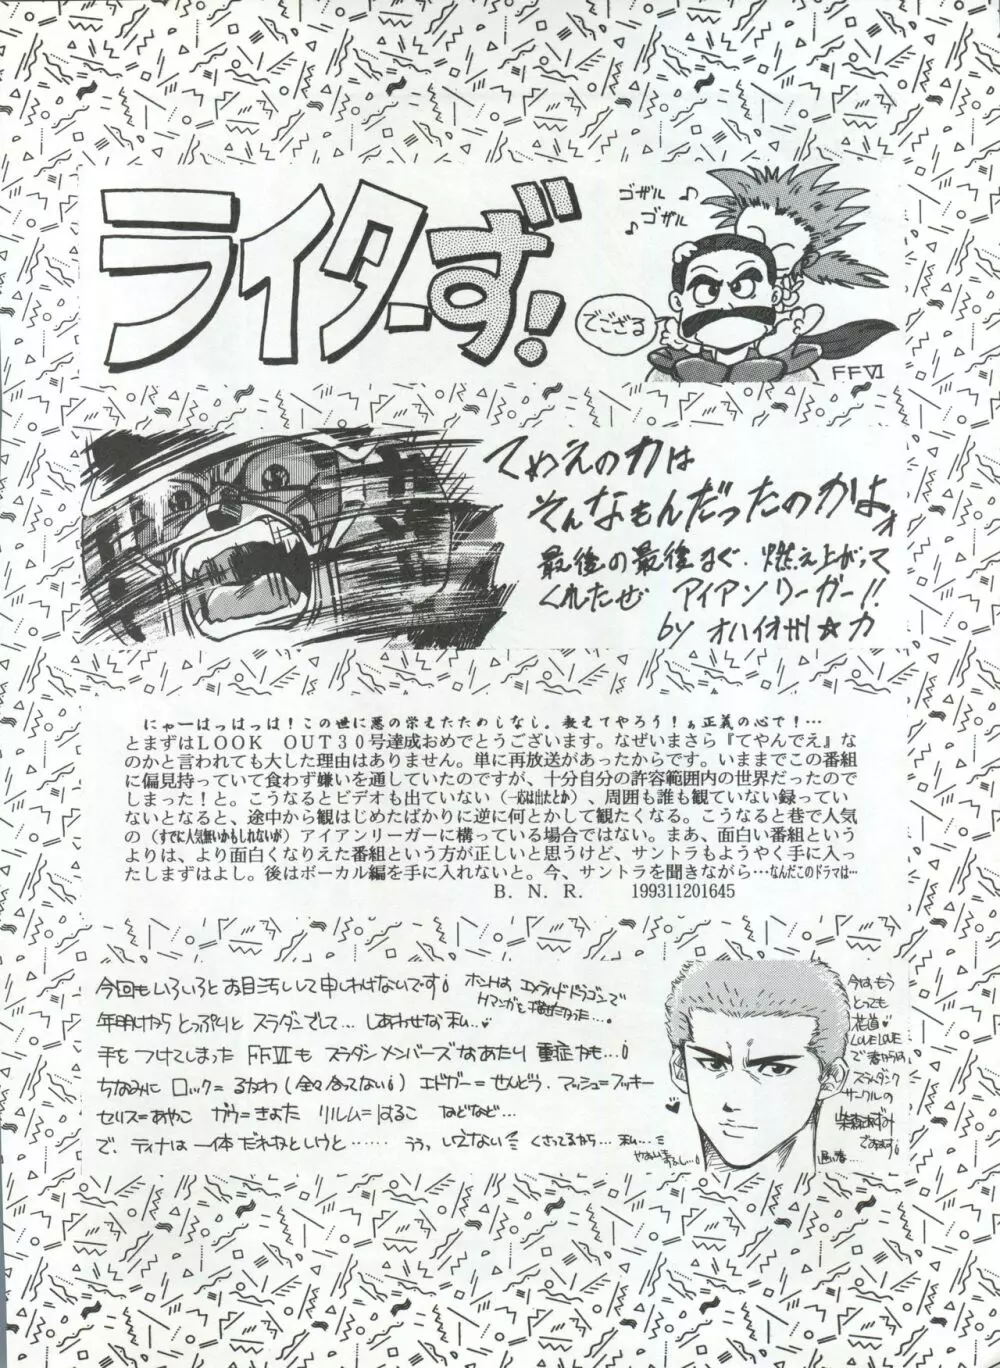 ライターず!
ゴザル♪
♪ゴザル
でござる
FFVI
てめえの力は
そんなもんだったのかよォ
最後の最後まで、燃え上がって
くれたぜ アイアンリーガー!!
by オハイオ州☆力
にゃーはっはっは!この世に悪の栄えたためしなし。教えてやろう!ぁ正義の心で!…
とまずはLOOK OUT30号達成おめでとうございます。なぜいまさら『てやんでえ』な
のかと言われても大した理由はありません。単に再放送があったからです。いままでこの番組
に偏見持っていて食わず嫌いを通していたのですが、十分自分の許容範囲内の世界だったので
しまった!と。こうなるとビデオも出ていない(一応は出たとか)、周囲も誰も観ていない録ってい
ないとなると、途中から観はじめたばかりに逆に何とかして観たくなる。こうなると巷で人気
の(すでに人気無いかもしれないが)アイアンリーガーに構っている場合ではない。まあ、面白い番組という
よりは、より面白くなりえた番組という方が正しいと思うけど、サントラもようやく手に入っ
たしまずはよし。後はボーカル編を手に入れないと。今、サントラを聞きながら…なんだこのドラマは…
B.N.R. 199311201645
今回もいろいろとお目汚しして申しわけないです! ホントはエメラルドドラゴンで
マンガを描きたかった…。
年明けからとっぷりと スラダンでして… しあわせな私…♥
手をつけてしまった FFVIも スラダンメンバーズなあたり 重症かも…!
ちなみに ロック=るかわ(全々合ってない!) エドガー=せんどう、マッシュ=フッキー
セリス=あやこ ガウ=きよた リルム=はるこ などなど…
で、ティナは一体だれかというと…… うぅっ しょうない くさってるから… 私…
今はもう
とっても
花道♥
LOVE LOVE
で
スラムダンク
サークルの
柴森あずみ
でおます!